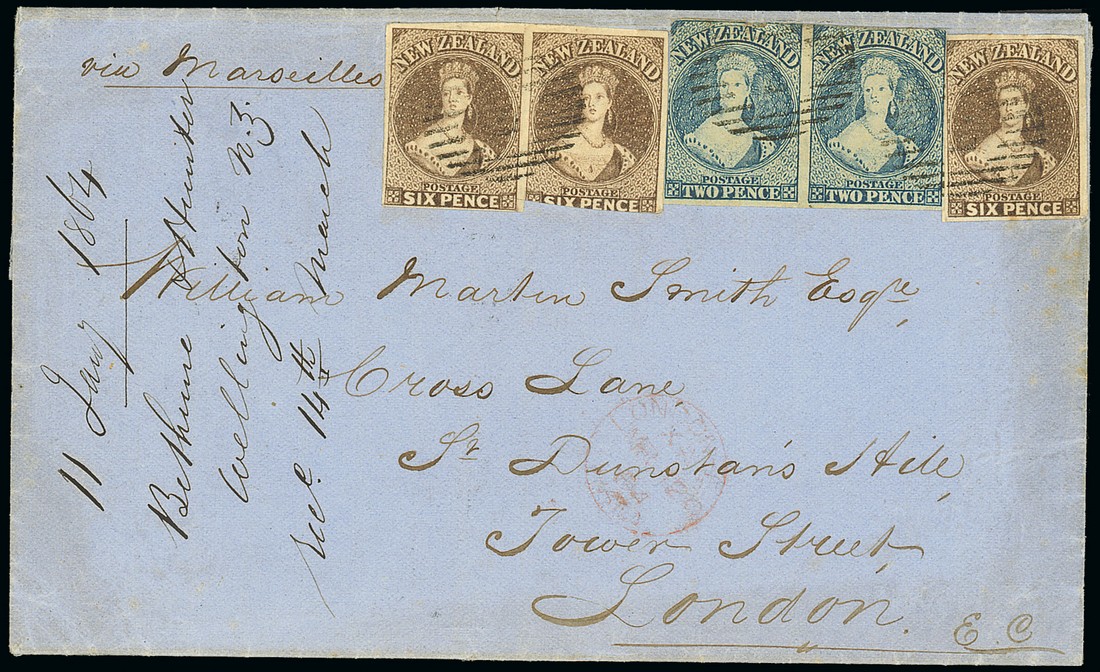 via Marseilles
NEW ZEALAND
POSTAGE
SIX PENCE
NEW ZEALAND
POSTAGE
SIX PENCE
NEW ZEALAND
POSTAGE
TWO PENCE
NEW ZEALAND
POSTAGE
TWO PENCE
NEW ZEALAND
POSTAGE
SIX PENCE
11 Jany 1864
Bethune & Hunter
Wellington N.Z.
recd. 14th March
William Martin Smith Esqre,
Cross Lane,
St Dunstan's Hill,
Tower Street,
London.
E. C
LONDON